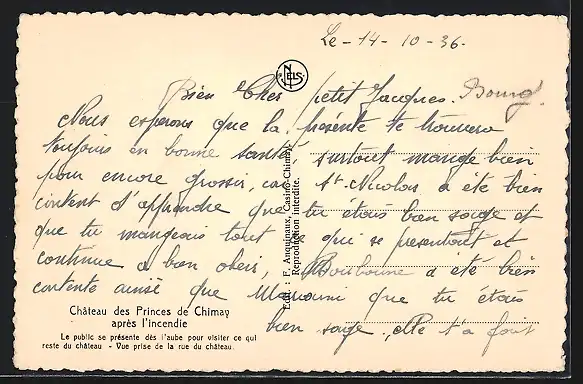 Le - 14 - 10 - 36.
NELS
Bien Cher petit Jacques.
Nous esperons que la présente te trouvera
toujours en bonne santé, surtout mange bien
pour encore grossir, car St Nicolas a été bien
content d'apprendre que tu étais bien sage et
que tu mangeais tout ce qui se présentait et
continue a bien obeir, Bonbonne a été bien
contente ainsi que Mamouni que tu étais
bien sage, elle t'a fait
Edit. : F. Anquinaux, Casino-Chimay.
Reproduction interdite.
Château des Princes de Chimay
après l'incendie
Le public se présente dès l'aube pour visiter ce qui
reste du château - Vue prise de la rue du château.